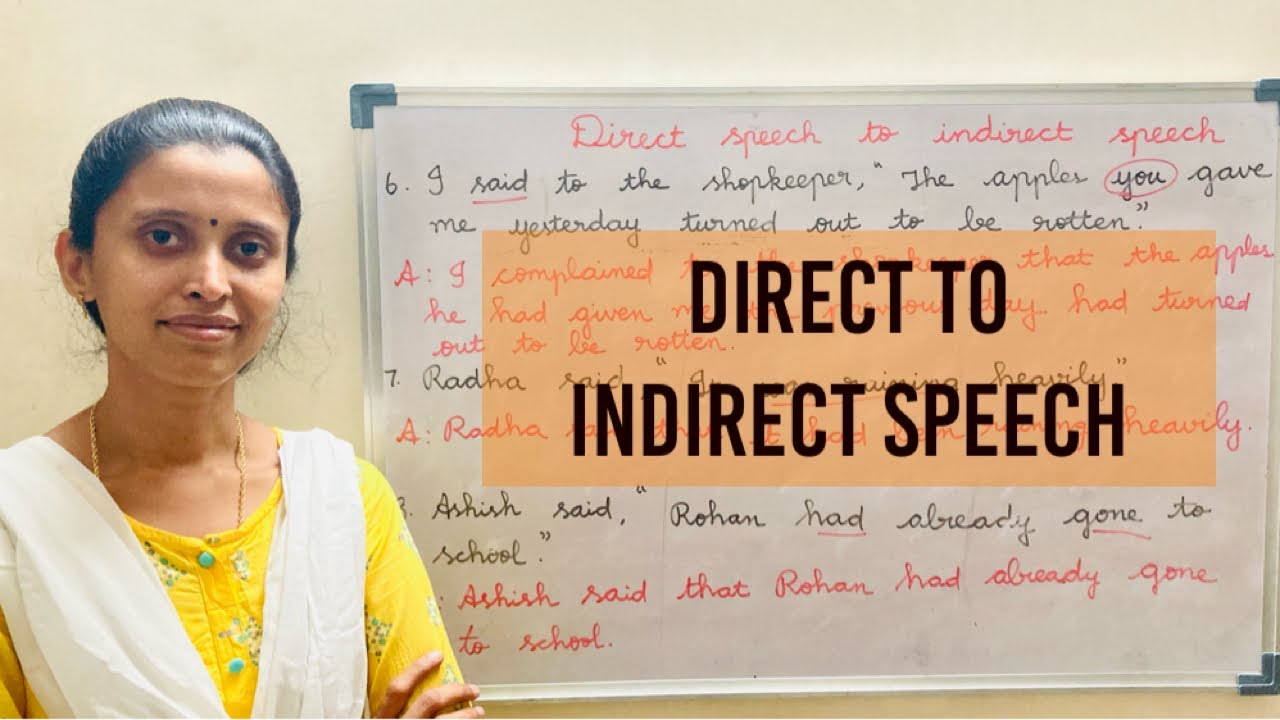 Direct speech to indirect speech
6. I said to the shopkeeper, "The apples you gave
me yesterday turned out to be rotten."
A: I complained to the shopkeeper that the apples
he had given me the previous day had turned
out to be rotten.
7. Radha said, "It was raining heavily"
A: Radha said that it had been raining heavily.
8. Ashish said, "Rohan had already gone to
school."
Ashish said that Rohan had already gone
to school.
DIRECT TO
INDIRECT SPEECH